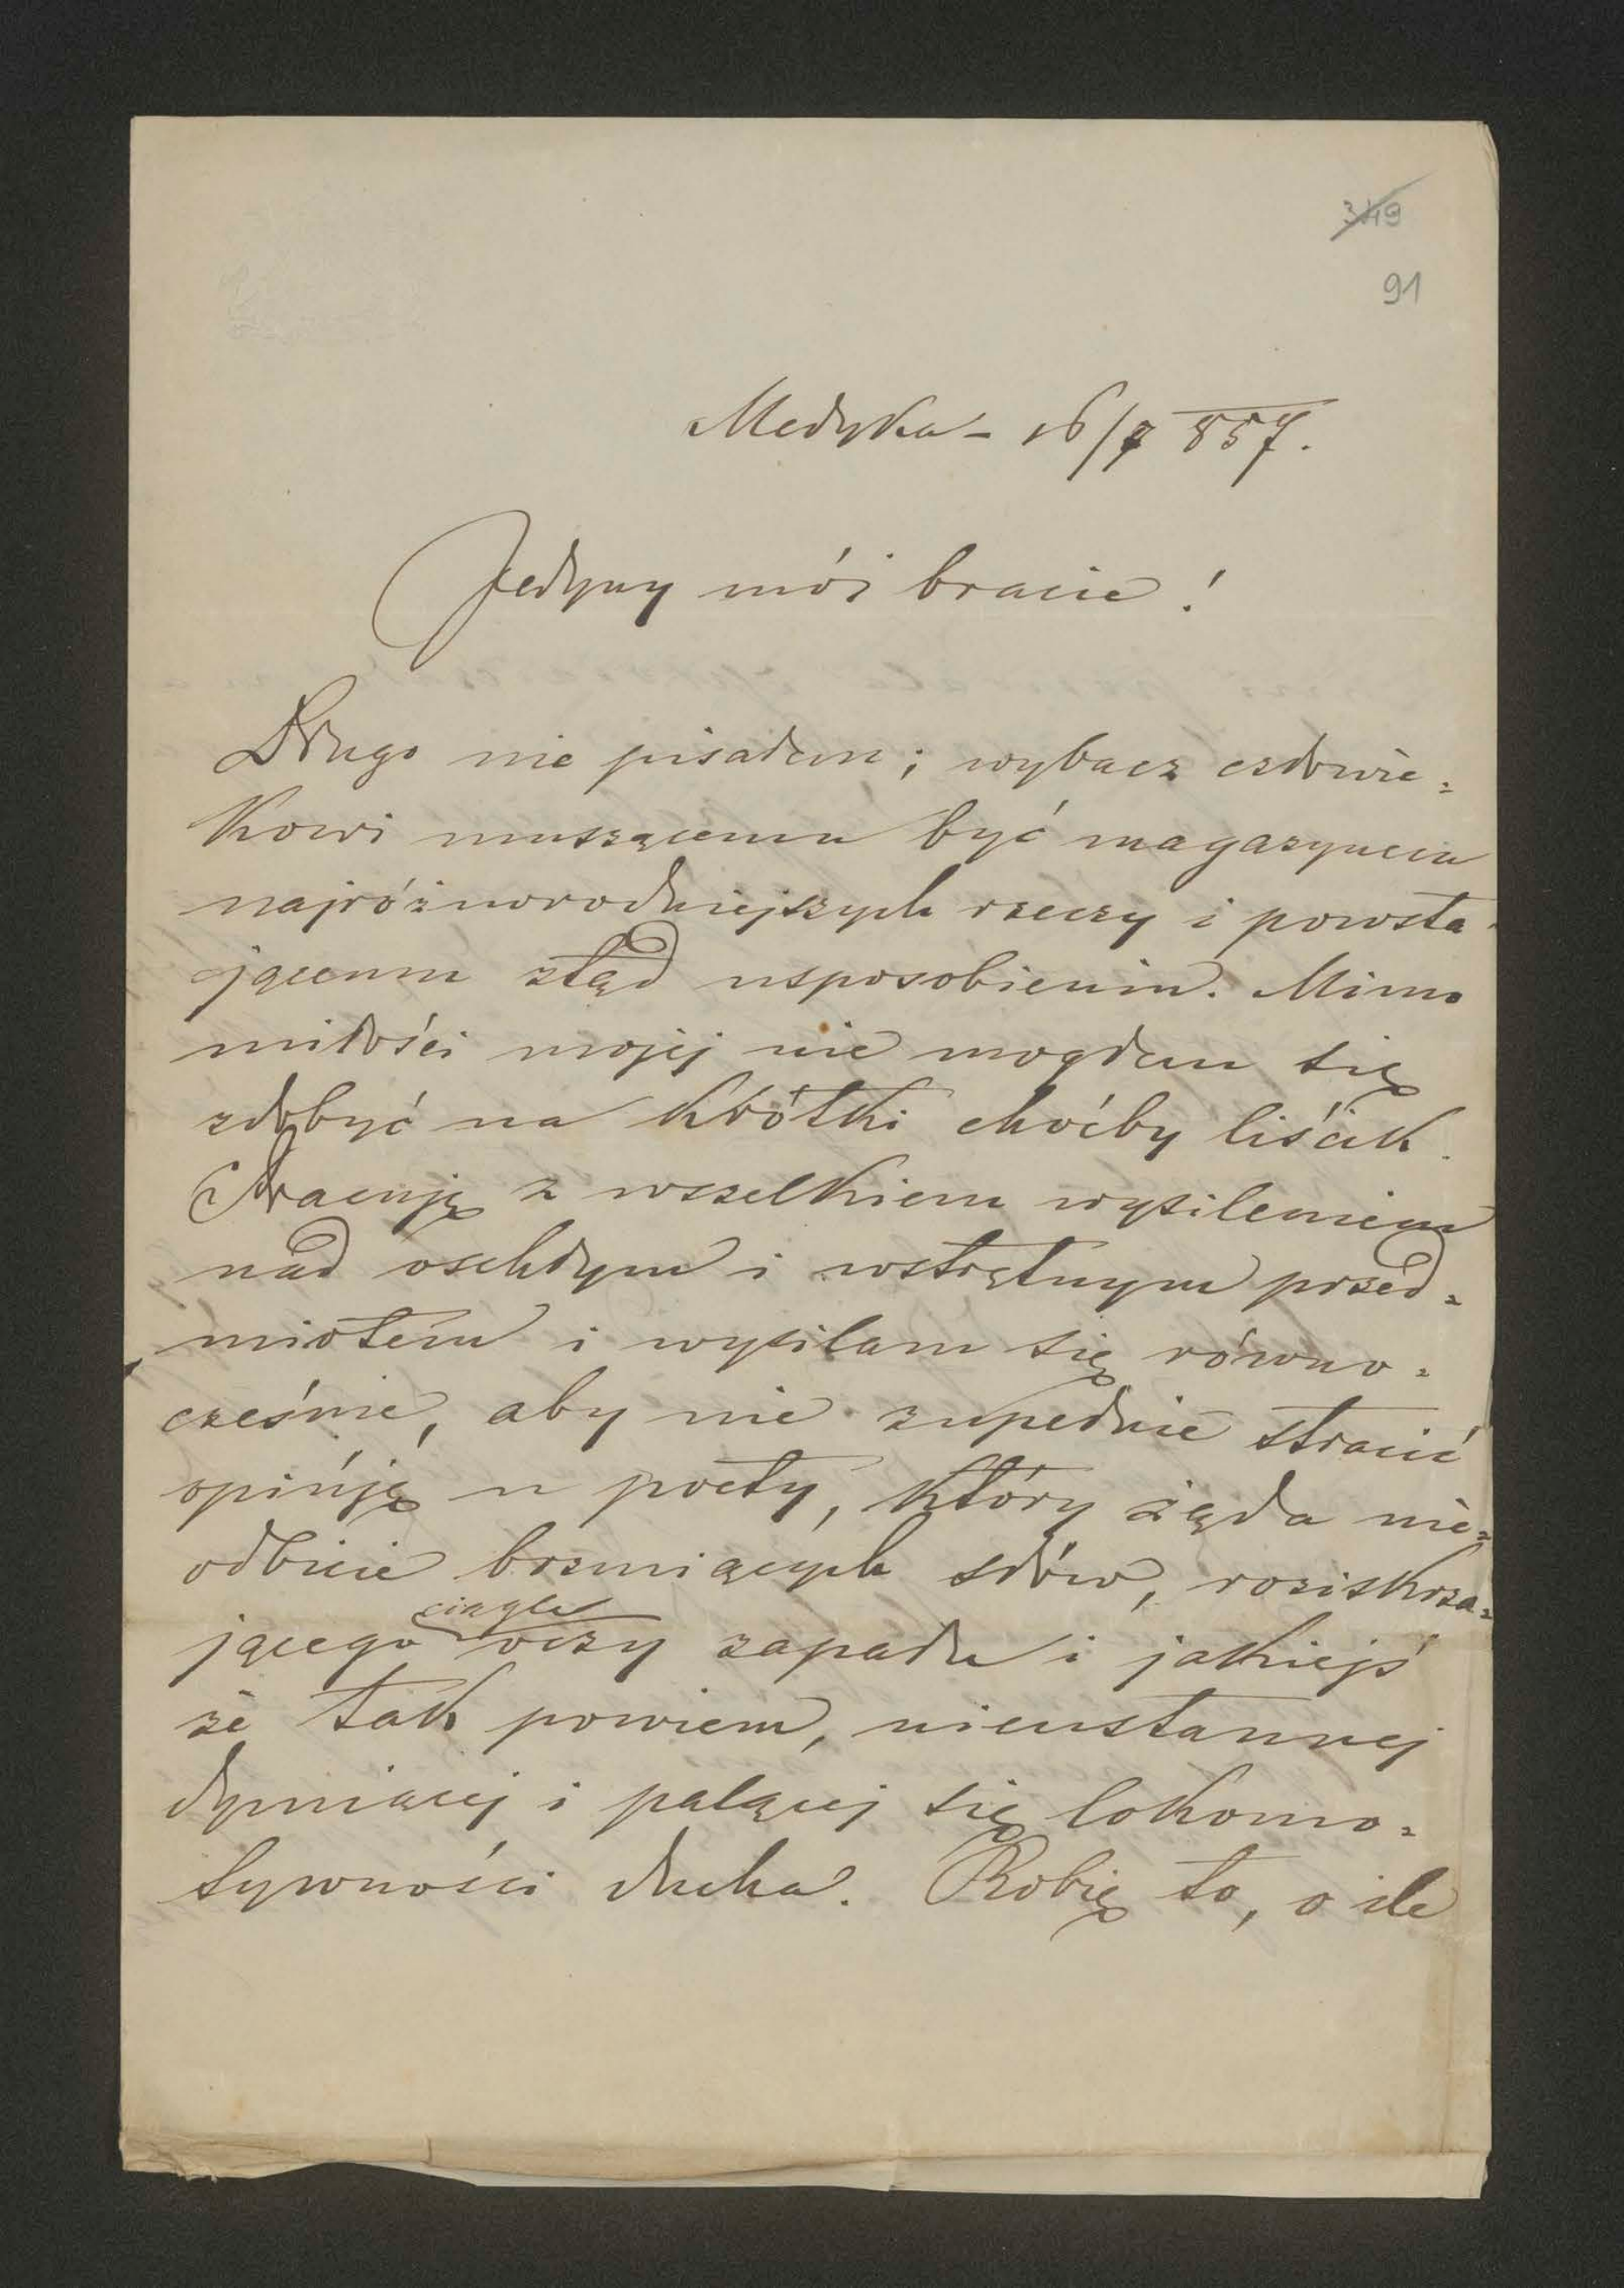 349
91
Medyka - 16/7 857.
Jedyny mój bracie!
Długo nie pisałem; wybacz człowie=
kowi muszącemu być magazynem
najróżnorodniejszych rzeczy i powsta
jącemu ztąd usposobieniu. Mimo
miłości mojej nie mogłem się
zdobyć na krótki choćby liścik.
Pracuję z wszelkiem wysileniem
nad oschłym i wstrętnym przed=
miotem i wysilam się równo=
cześnie, aby nie zupełnie stracić
opinję u poety, który żąda nie=
odbicie brzmiących słów, roziskrza=
jącego ciągle oczy zapału i jakiejś
że tak powiem, nieustannej
dymiącej i palącej się lokomo=
tywności ducha. Robię to, o ile